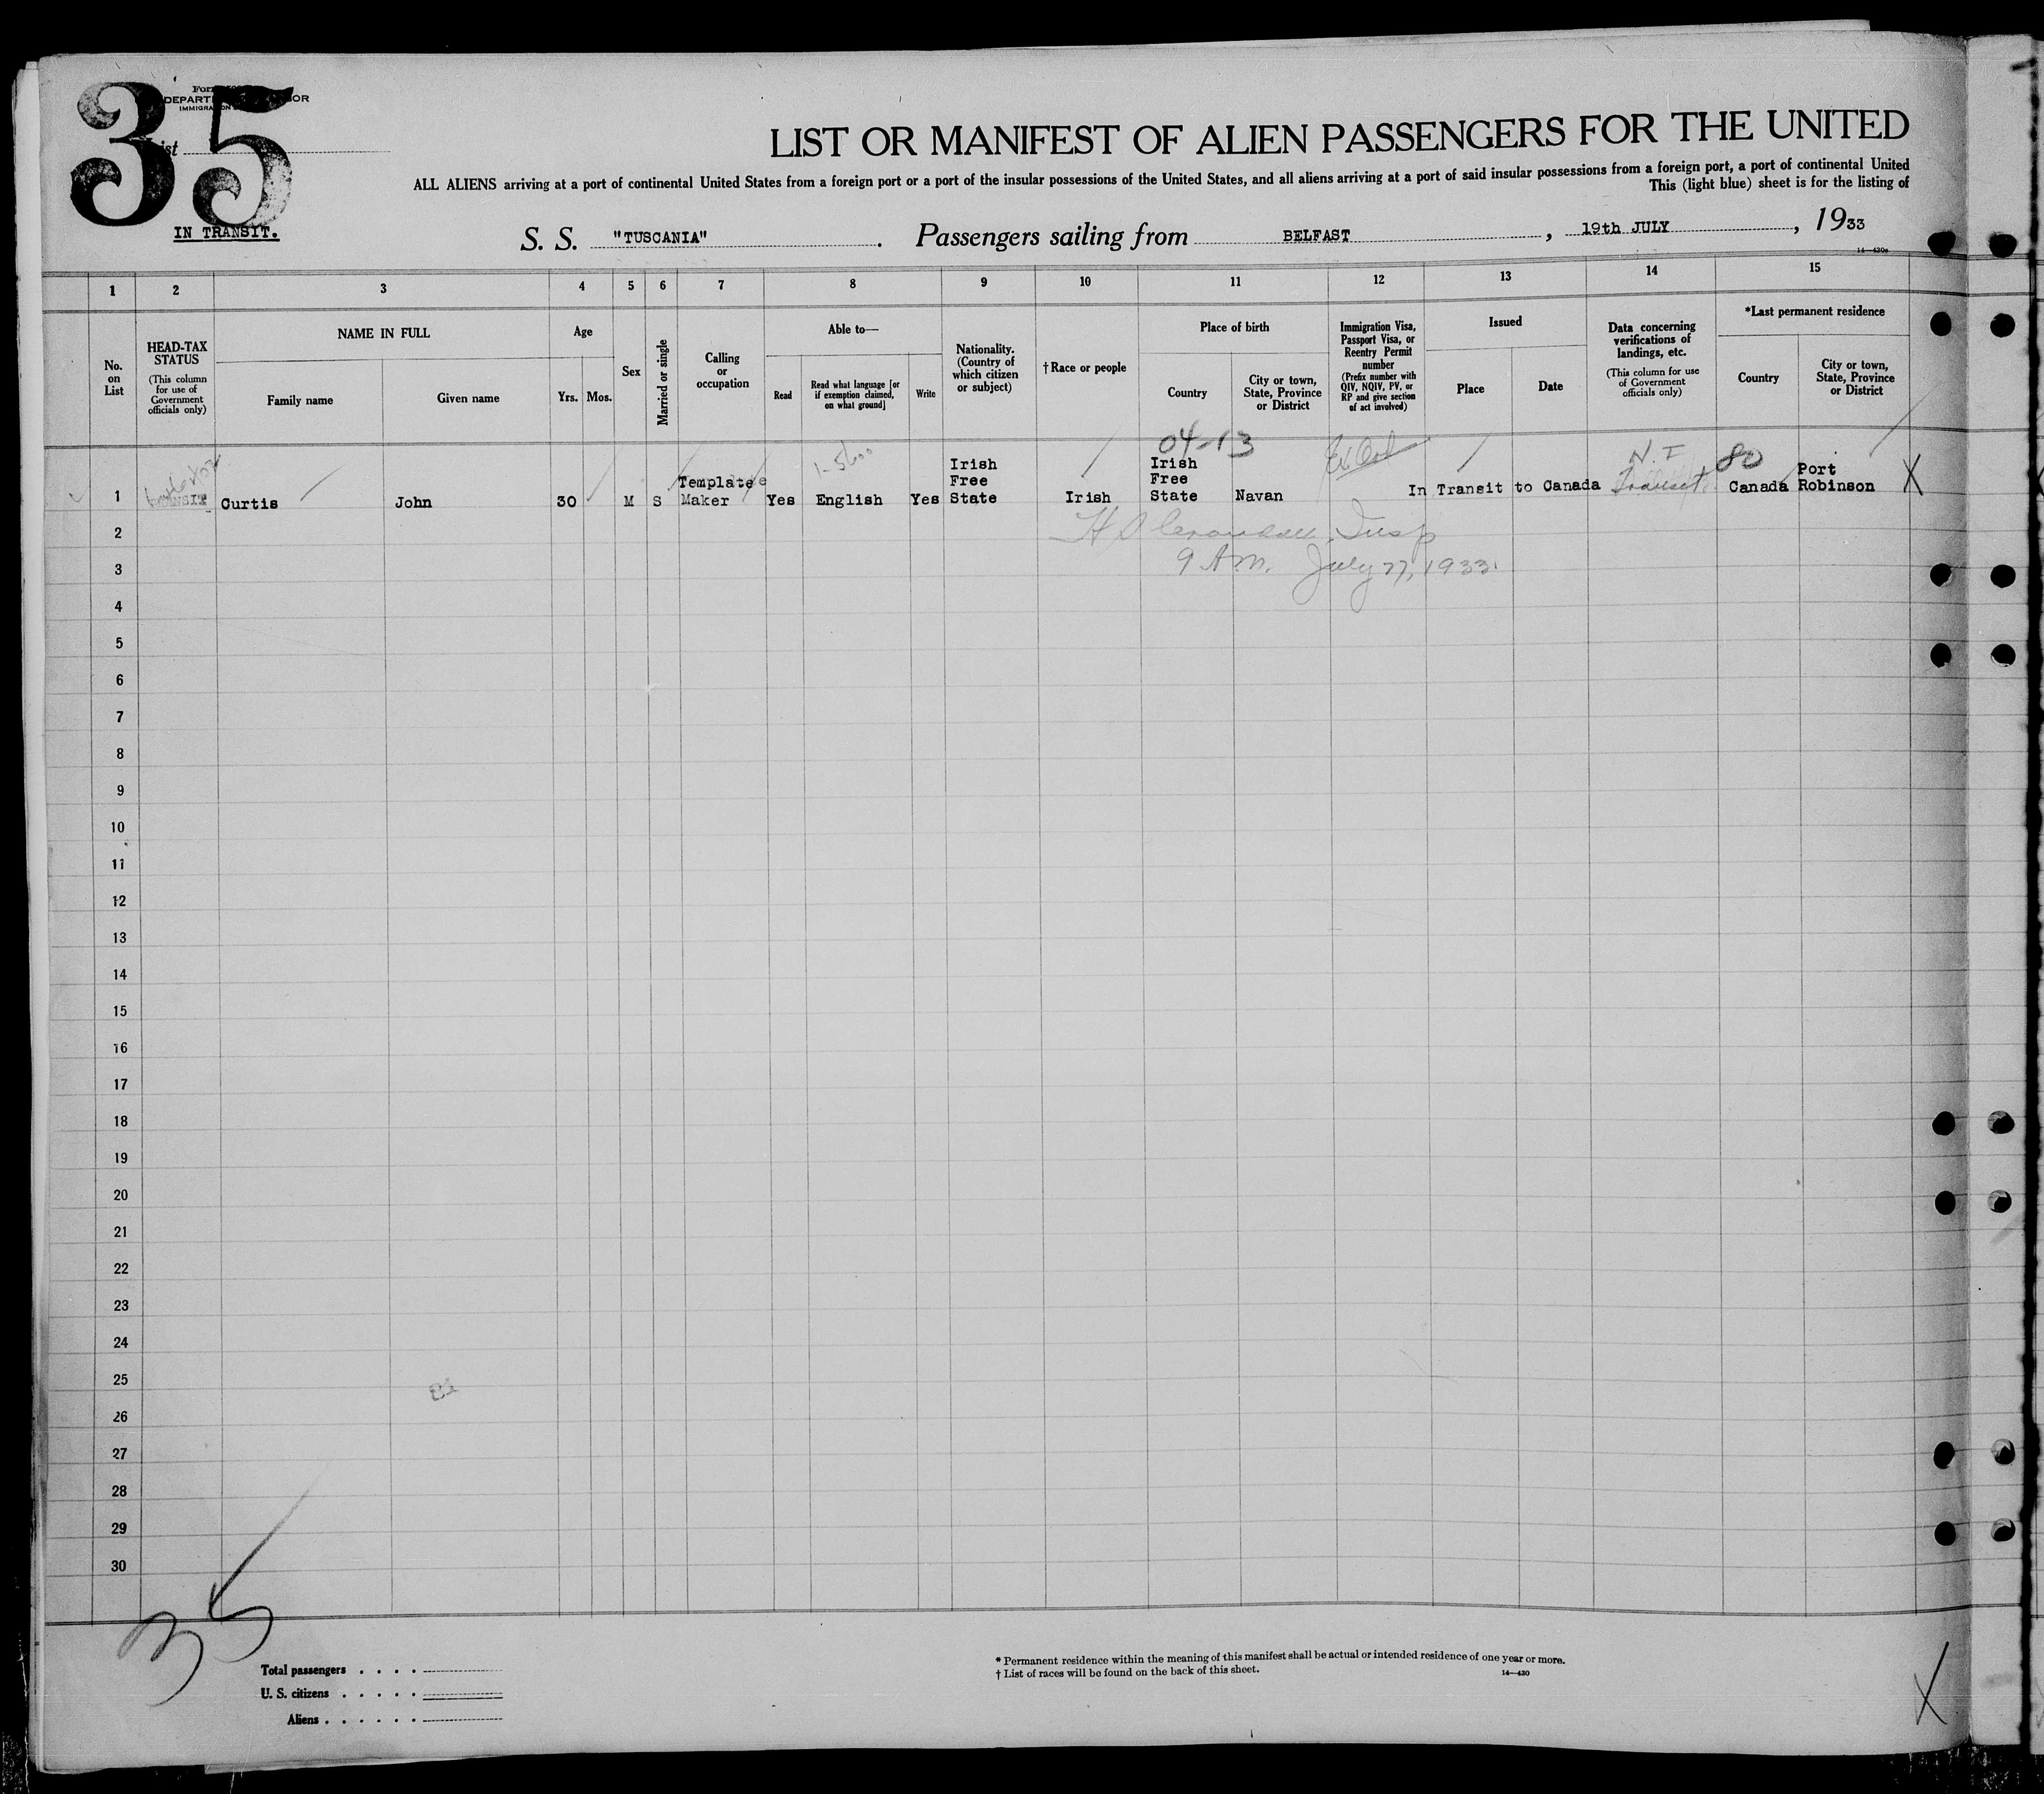 35
Form
DEPARTMENT OF LABOR
IMMIGRATION
List
IN TRANSIT.
LIST OR MANIFEST OF ALIEN PASSENGERS FOR THE UNITED
ALL ALIENS arriving at a port of continental United States from a foreign port or a port of the insular possessions of the United States, and all aliens arriving at a port of said insular possessions from a foreign port, a port of continental United
This (light blue) sheet is for the listing of
S. S. "TUSCANIA". Passengers sailing from BELFAST, 19th JULY, 1933
14—430a
1 2 3 4 5 6 7 8 9 10 11 12 13 14 15
No. on List
HEAD-TAX STATUS
(This column for use of Government officials only)
NAME IN FULL
Family name
Given name
Age
Yrs.
Mos.
Sex
Married or single
Calling or occupation
Able to—
Read
Read what language [or if exemption claimed, on what ground]
Write
Nationality. (Country of which citizen or subject)
†Race or people
Place of birth
Country
City or town, State, Province or District
Immigration Visa, Passport Visa, or Reentry Permit number
(Prefix number with QIV, NQIV, PV, or RP and give section of act involved)
Issued
Place
Date
Data concerning verifications of landings, etc.
(This column for use of Government officials only)
*Last permanent residence
Country
City or town, State, Province or District
04-13
N.T
80
1 TRANSIT Curtis John 30 M S Template Maker Yes English Yes Irish Free State Irish Irish Free State Navan In Transit to Canada Transit Canada Port Robinson X
2
Insp
3
9 AM. July 27, 1933.
4
5
6
7
8
9
10
11
12
13
14
15
16
17
18
19
20
21
22
23
24
25
26
27
28
29
30
35
Total passengers . . . .
U. S. citizens . . . . .
Aliens . . . . . .
* Permanent residence within the meaning of this manifest shall be actual or intended residence of one year or more.
† List of races will be found on the back of this sheet.
14—430
X